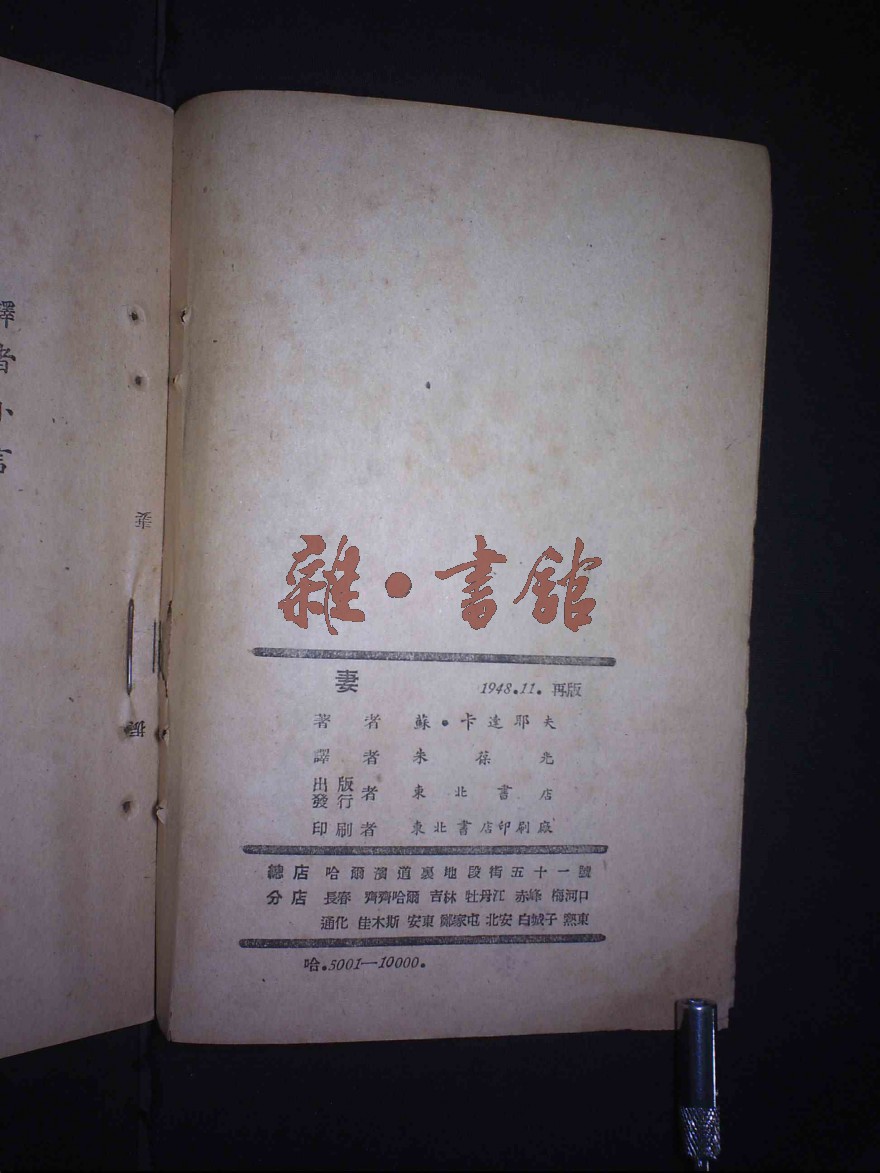 譯者小言
妻
雜·書館
妻 1948.11. 再版
著者 蘇·卡達耶夫
譯者 朱葆光
出版發行者 東北書店
印刷者 東北書店印刷廠
總店 哈爾濱道裏地段街五十一號
分店 長春 齊齊哈爾 吉林 牡丹江 赤峰 梅河口
通化 佳木斯 安東 鄭家屯 北安 白城子 冀東
哈.5001—10000.